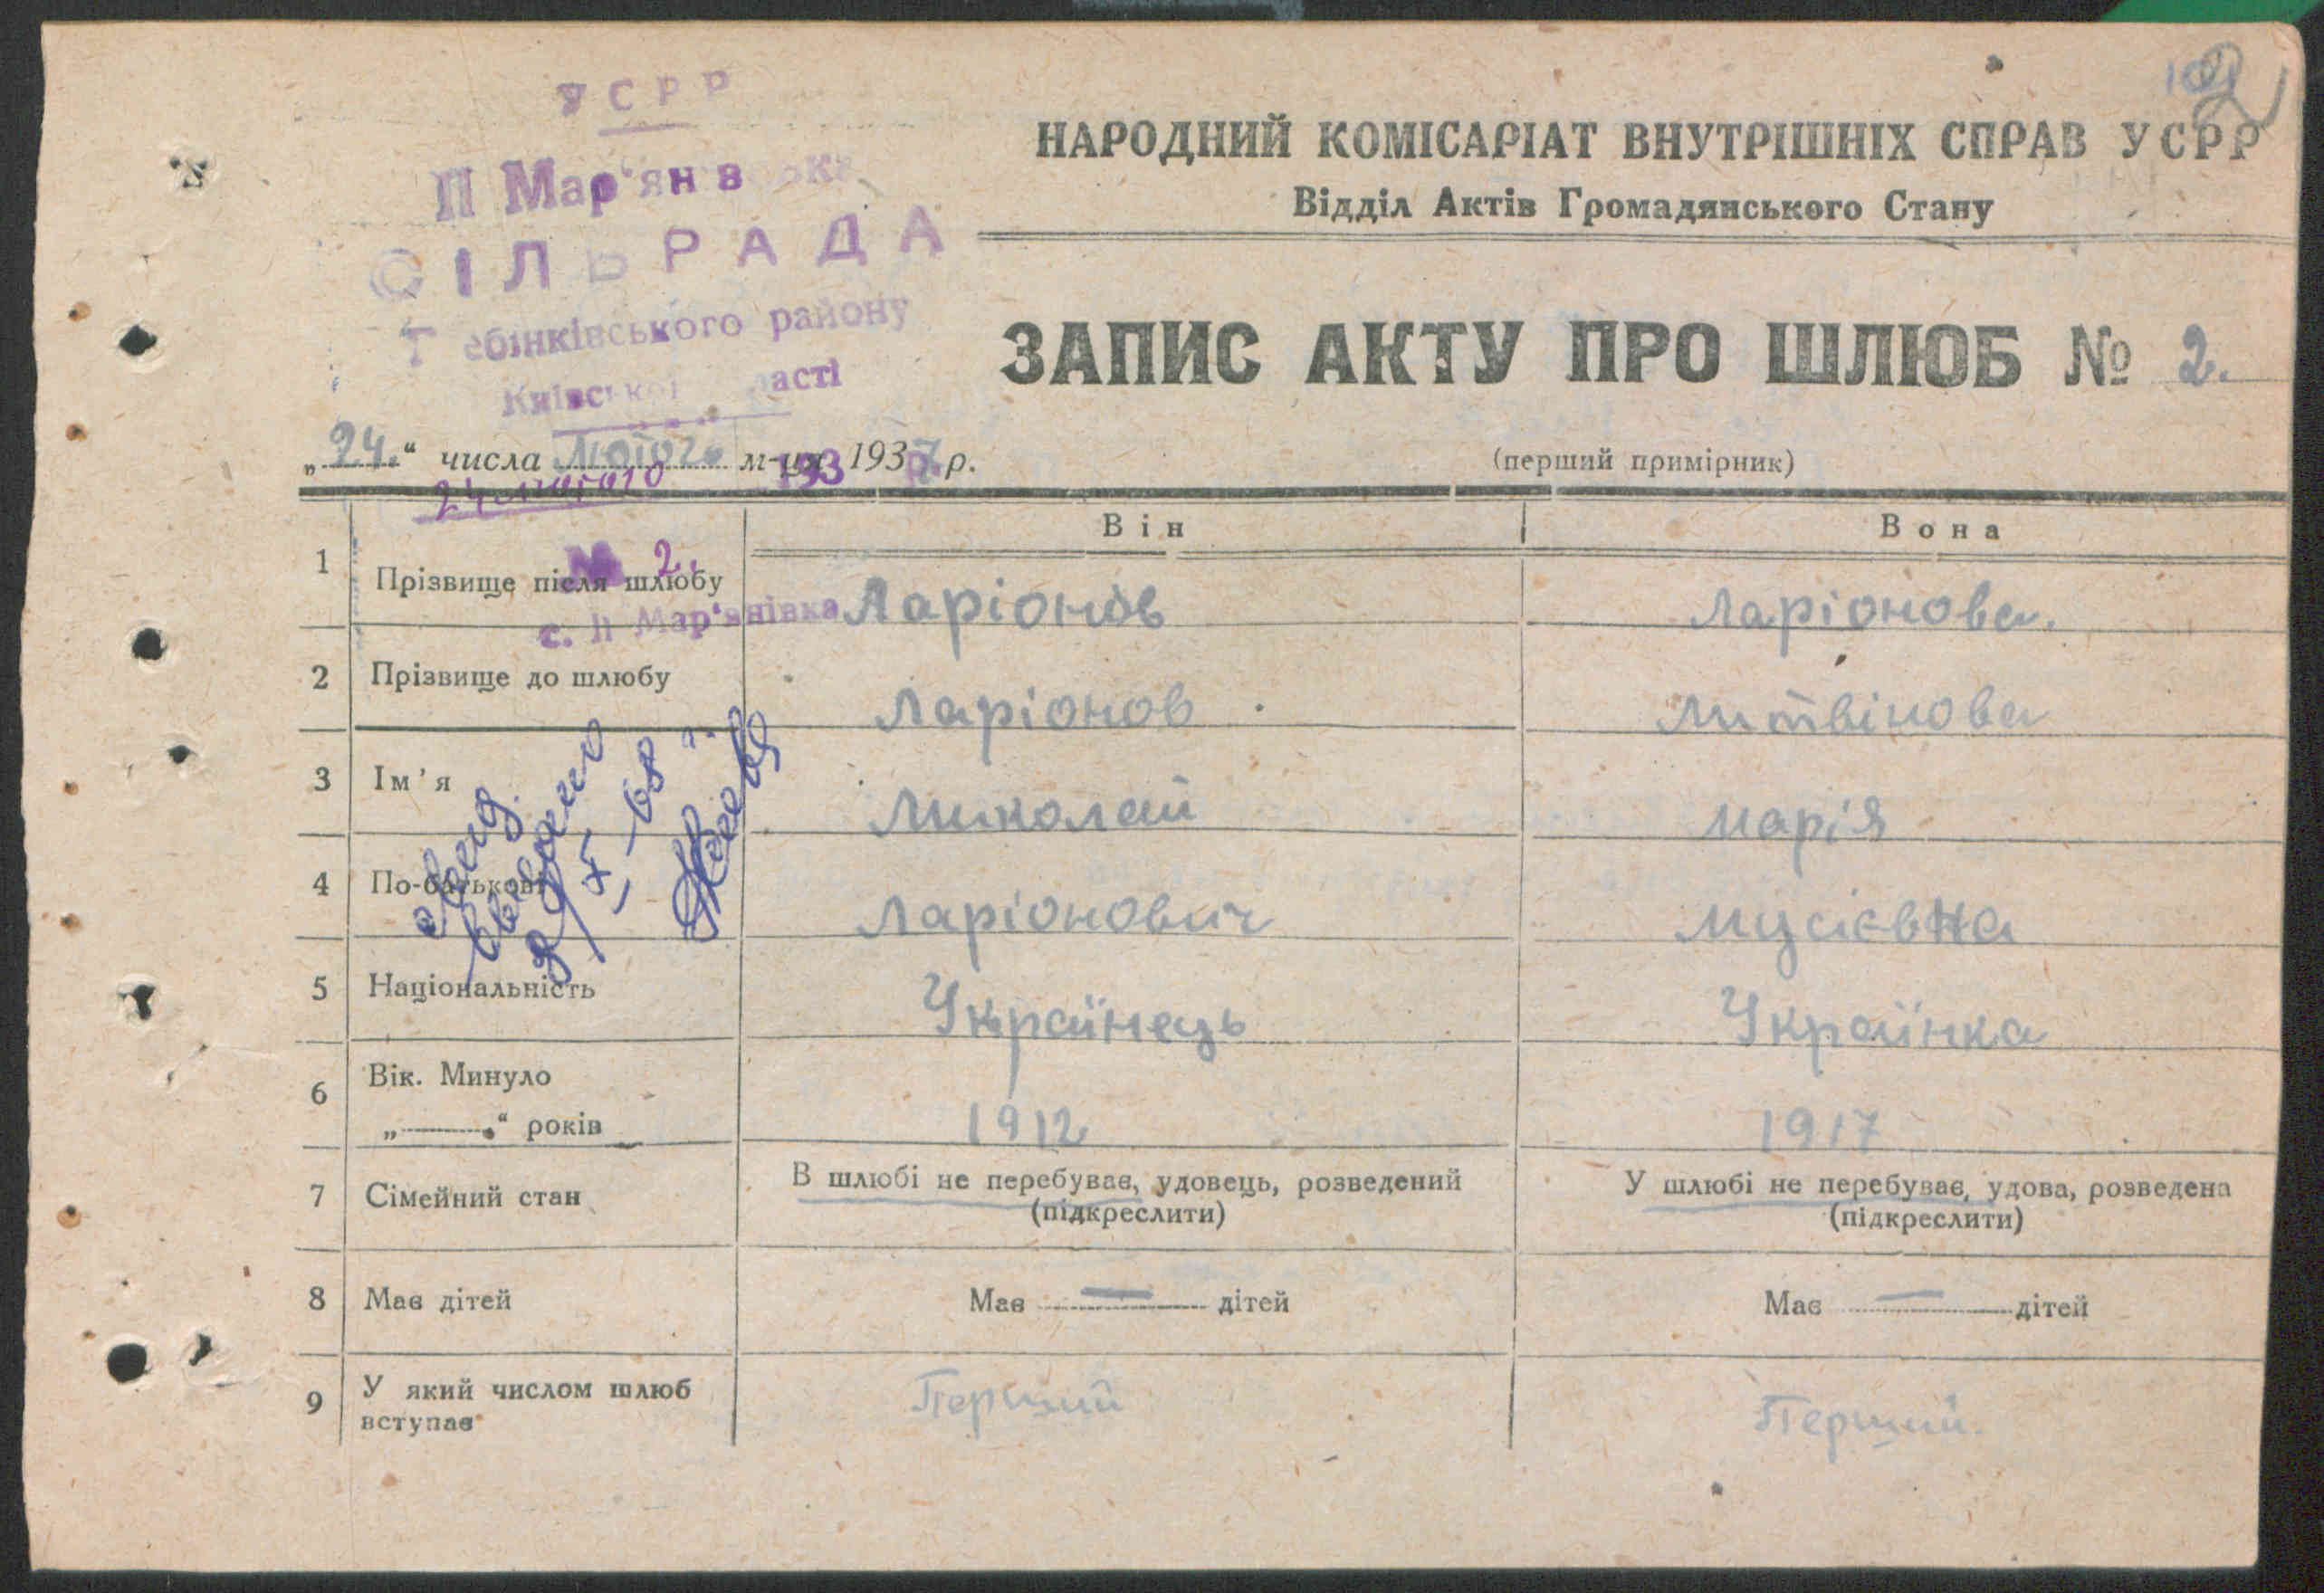 УСРР
ІІ Мар'янівська
СІЛЬРАДА
Гребінківського району
Київської області
НАРОДНИЙ КОМІСАРІАТ ВНУТРІШНІХ СПРАВ УСРР
Відділ Актів Громадянського Стану
ЗАПИС АКТУ ПРО ШЛЮБ № 2.
„24.“ числа лютого м-ця 1937 р.
(перший примірник)
24 лютого 193 р.
№ 2.
с. ІІ Мар'янівка
Він Вона
1 Прізвище після шлюбу Ларіонов Ларіонова.
2 Прізвище до шлюбу Ларіонов Литвінова
3 Ім'я Миколай Марія
4 По-батькові Ларіонович Мусієвна
5 Національність Українець Українка
6 Вік. Минуло
„—“ років 1912 1917
7 Сімейний стан В шлюбі не перебуває, удовець, розведений У шлюбі не перебуває, удова, розведена
(підкреслити) (підкреслити)
8 Має дітей Має — дітей Має — дітей
9 У який числом шлюб
вступає Перший Перший.